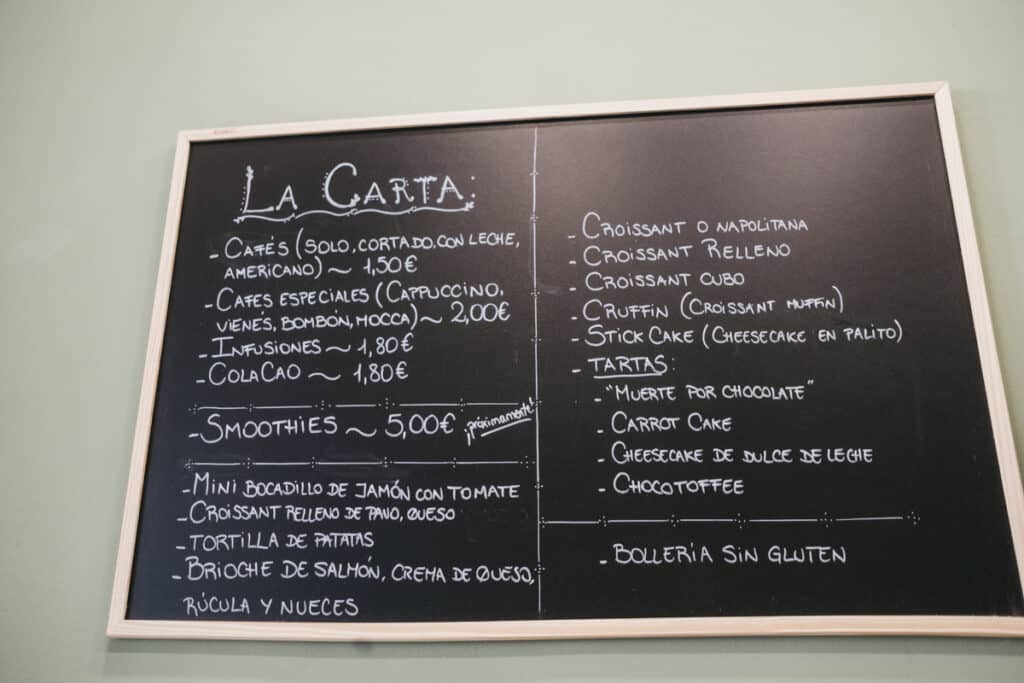 LA CARTA:
- CAFÉS (SOLO, CORTADO, CON LECHE,
AMERICANO) ~ 1,50€
- CAFES ESPECIALES (CAPPUCCINO,
VIENÉS, BOMBÓN, MOCCA) ~ 2,00€
- INFUSIONES ~ 1,80€
- COLACAO ~ 1,80€
- SMOOTHIES ~ 5,00€ ¡próximamente!
- MINI BOCADILLO DE JAMÓN CON TOMATE
- CROISSANT RELLENO DE PAVO, QUESO
- TORTILLA DE PATATAS
- BRIOCHE DE SALMÓN, CREMA DE QUESO,
RÚCULA Y NUECES
- CROISSANT O NAPOLITANA
- CROISSANT RELLENO
- CROISSANT CUBO
- CRUFFIN (CROISSANT MUFFIN)
- STICK CAKE (CHEESECAKE EN PALITO)
- TARTAS:
- "MUERTE POR CHOCOLATE"
- CARROT CAKE
- CHEESECAKE DE DULCE DE LECHE
- CHOCOTOFFEE
- BOLLERÍA SIN GLUTEN